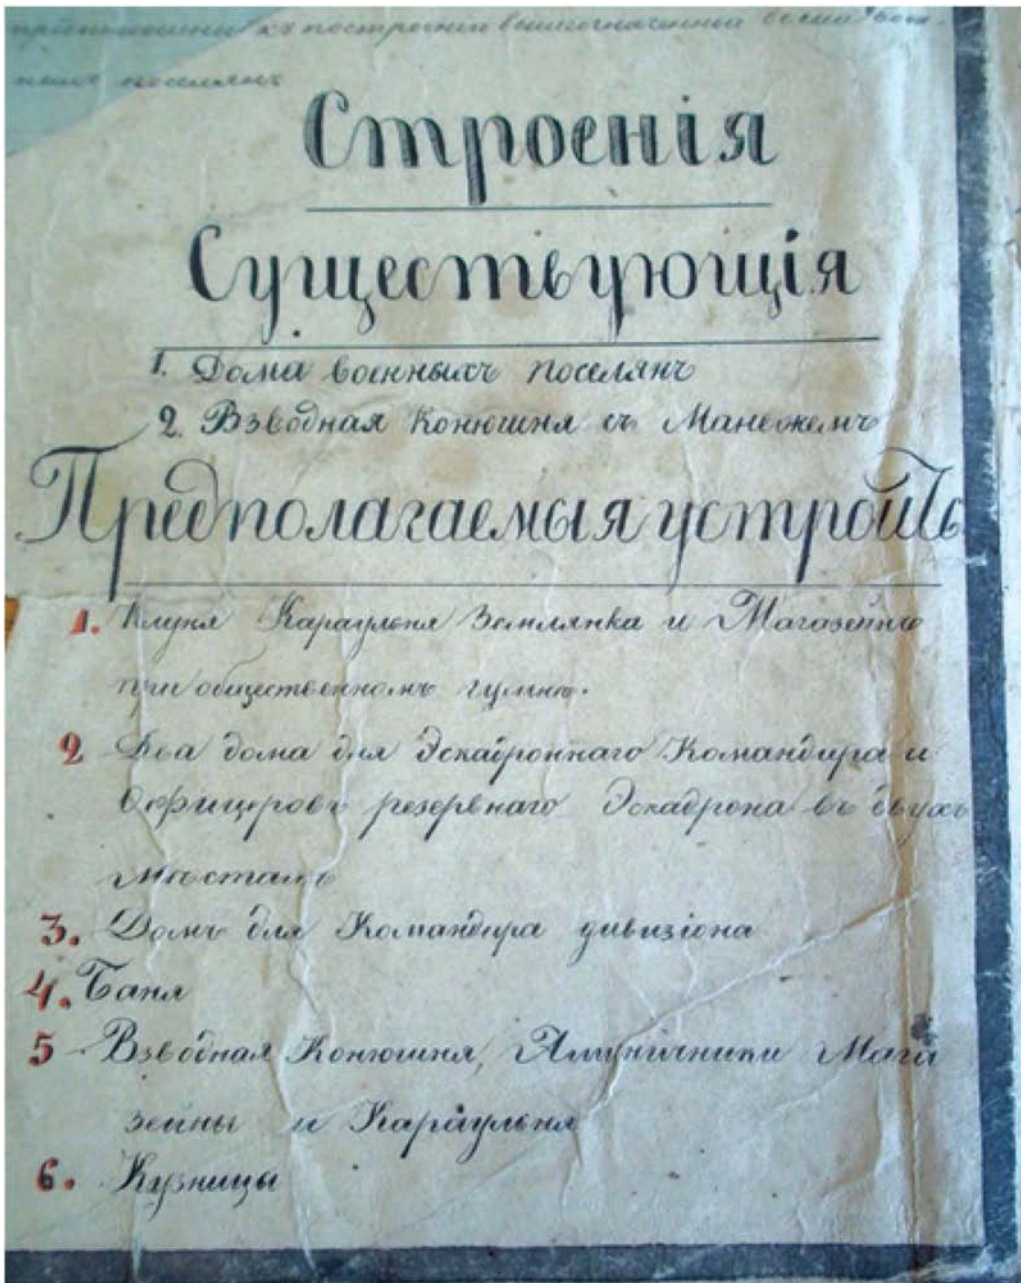 къ построенію вышеозначенной
поселянъ
Строенія
Существующія
1. Дома военныхъ поселянъ
2. Взводная Конюшня съ Манежемъ
Предполагаемыя устроить
1. Клуня Караульня Землянка и Магазейнъ
при общественномъ гумнѣ.
2 Два дома для Эскадроннаго Командира и
Офицеровъ резервнаго Эскадрона въ двухъ
мѣстахъ
3. Домъ для Командира дивизіона
4. Баня
5 Взводная Конюшня, Амуничники Мага
зейны и Караульня
6. Кузницы